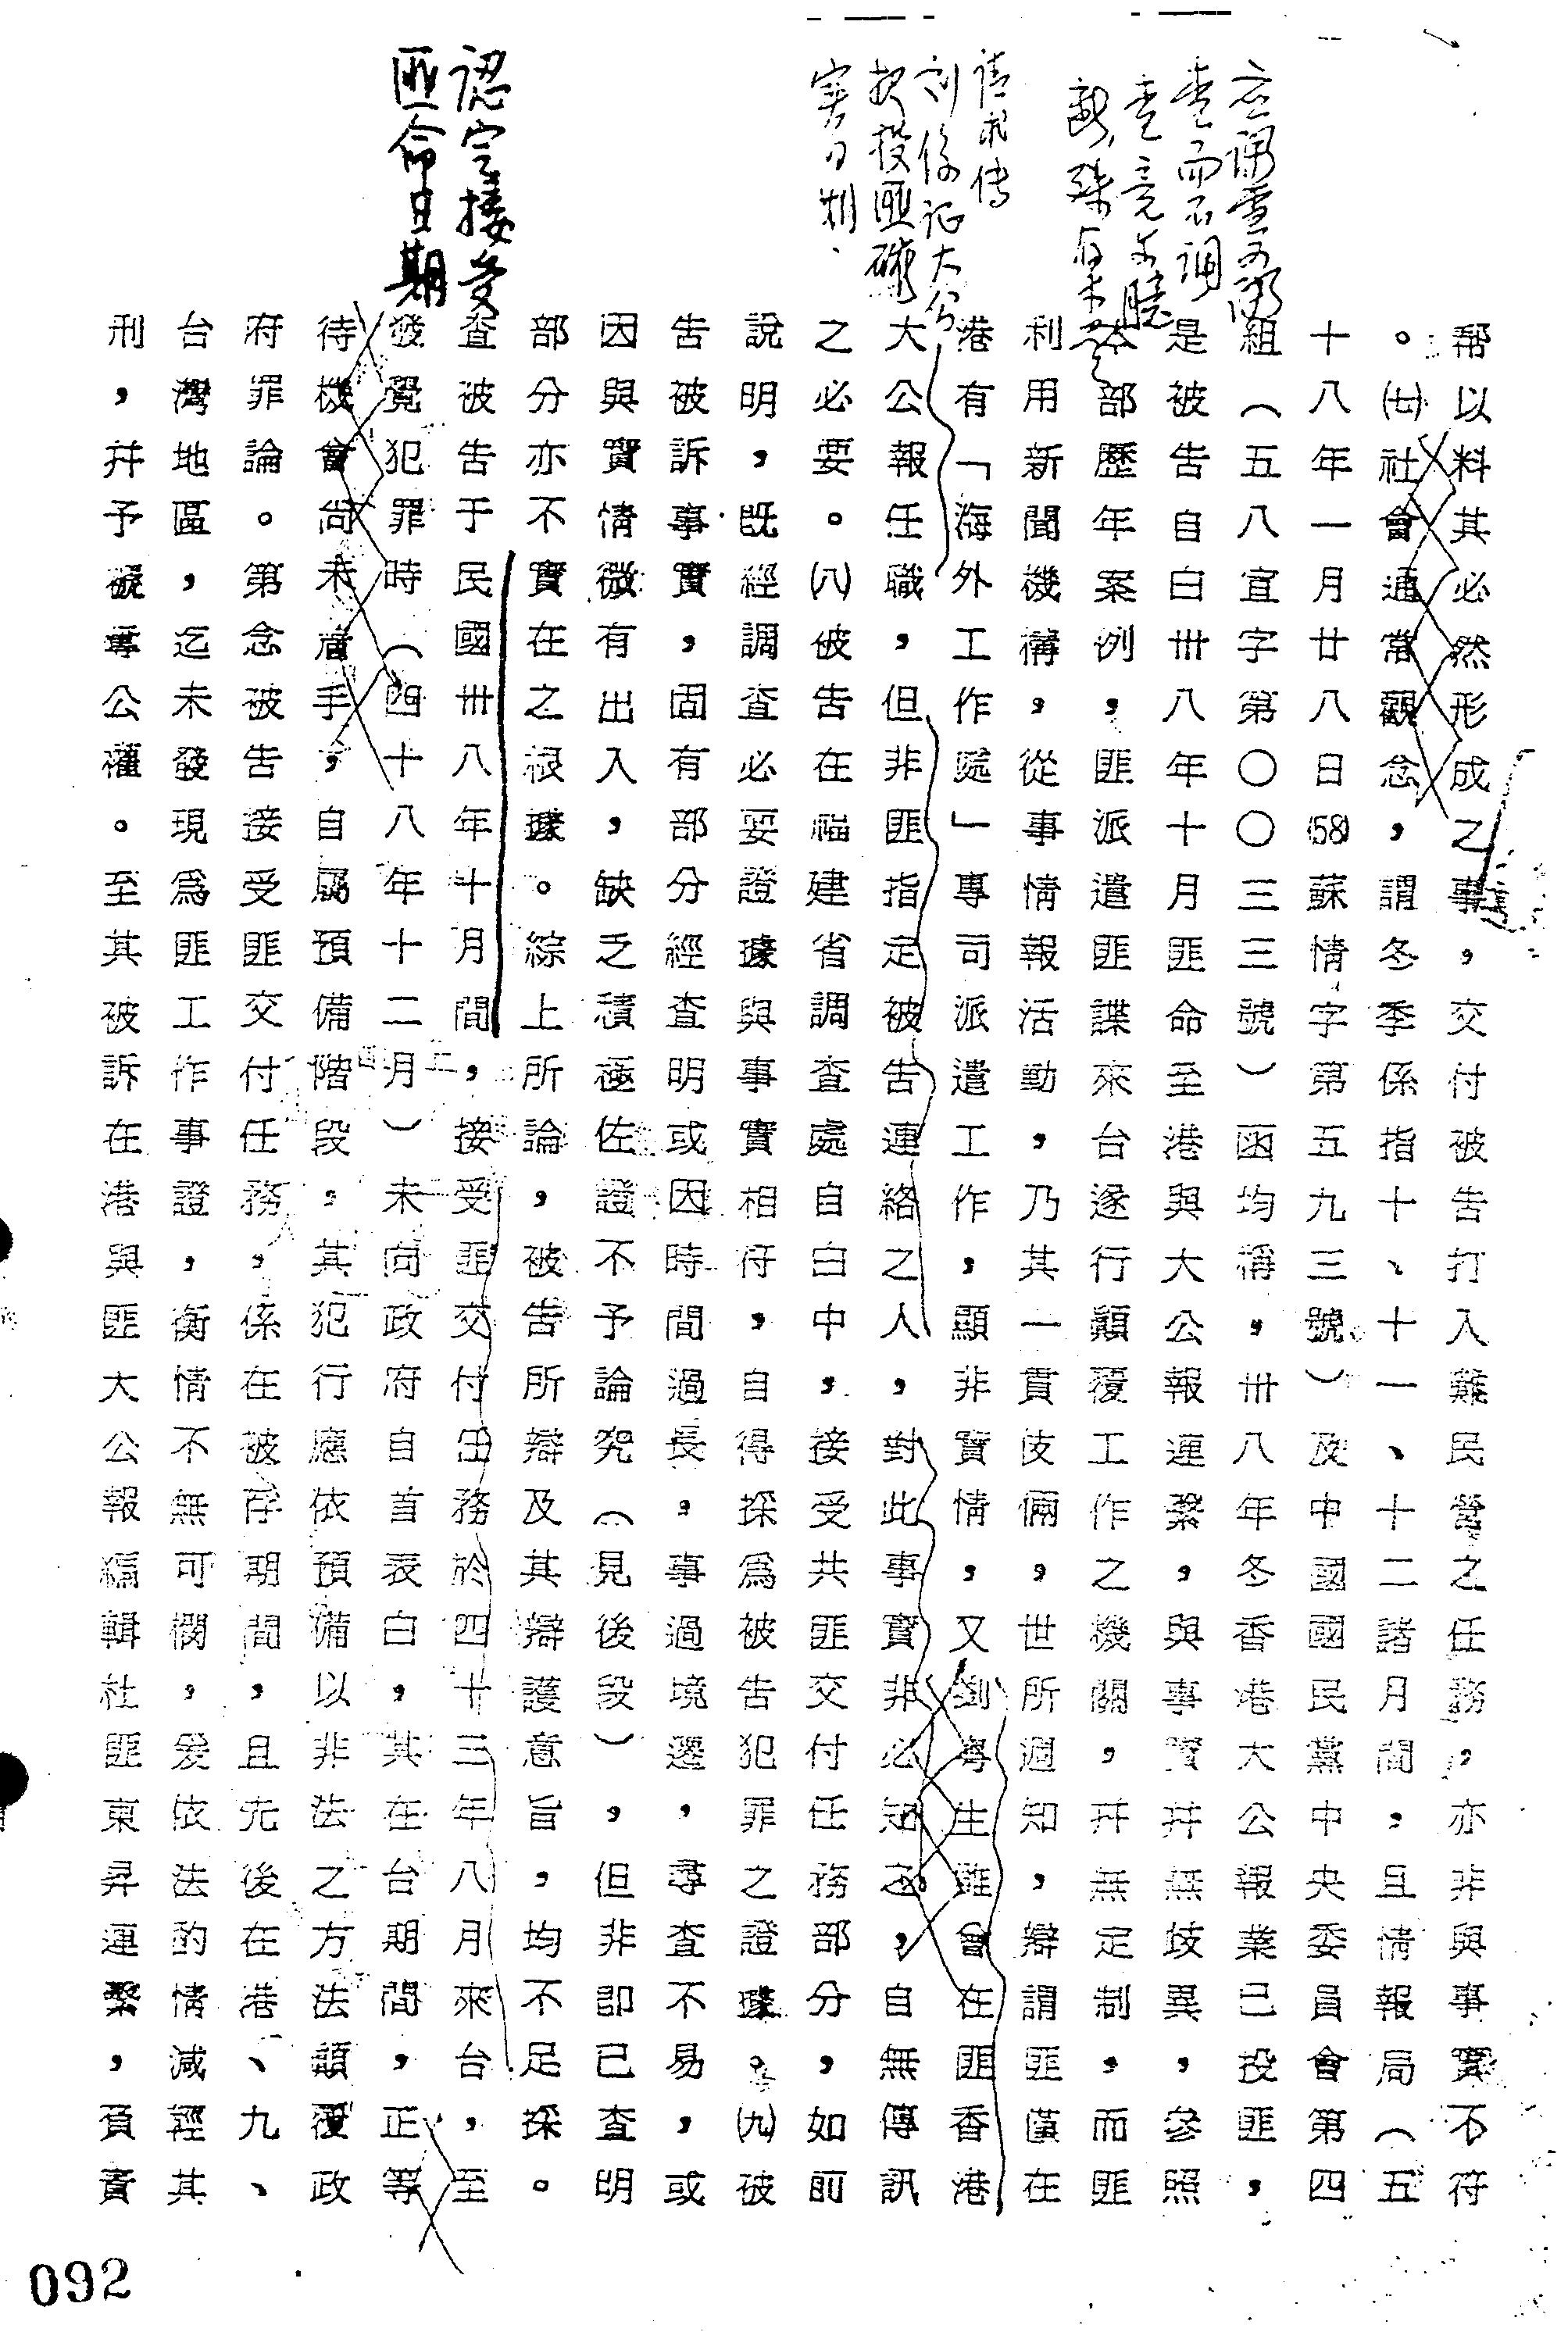 應調查可調
查而不調
查竟未
請求傳
劉係証大公
報投匪確
實日期、
認定接受
匪命日期
幫以料其必然形成之事，交付被告打入難民營之任務，亦非與事實不符
。㈦社會通常觀念，謂冬季係指十、十一、十二諸月間，且情報局（五
十八年一月廿八日(58)蘇情字第五九三號）及中國國民黨中央委員會第四
組（五八宣字第〇〇三三號）函均稱，卅八年冬香港大公報業已投匪，
是被告自白卅八年十月匪命至港與大公報連繫，與事實并無歧異，參照
本部歷年案例，匪派遣匪諜來台遂行顛覆工作之機關，并無定制，而匪
利用新聞機構，從事情報活動，乃其一貫伎倆，世所週知，辯謂匪僅在
港有「海外工作處」專司派遣工作，顯非實情，又劉粵生雖曾在匪香港
大公報任職，但非匪指定被告連絡之人，對此事實非必知悉，自無傳訊
之必要。㈧被告在福建省調查處自白中，接受共匪交付任務部分，如前
說明，既經調查必要證據與事實相符，自得採為被告犯罪之證據。㈨被
告被訴事實，固有部分經查明或因時間過長，事過境遷，尋查不易，或
因與實情微有出入，缺乏積極佐證不予論究（見後段），但非即已查明
部分亦不實在之根據。綜上所論，被告所辯及其辯護意旨，均不足採。
查被告于民國卅八年十月間，接受匪交付任務於四十三年八月來台，至
發覺犯罪時（四十八年十二月）未向政府自首表白，其在台期間，正等
待機會尚未着手，自屬預備階段，其犯行應依預備以非法之方法顛覆政
府罪論。第念被告接受匪交付任務，係在被俘期間，且先後在港、九、
台灣地區，迄未發現為匪工作事證，衡情不無可憫，爰依法酌情減輕其
刑，并予褫奪公權。至其被訴在港與匪大公報編輯社匪東昇連繫，負責
092